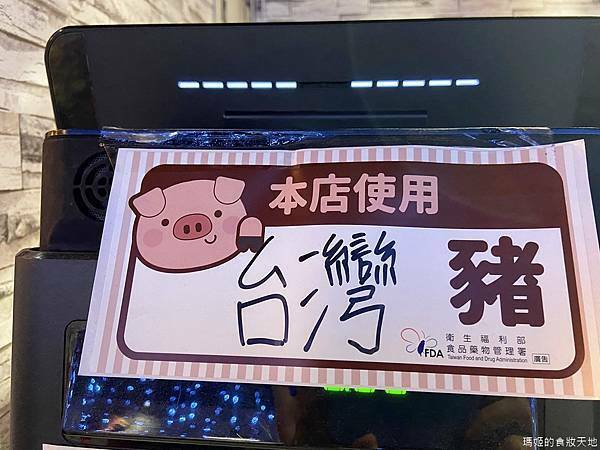 本店使用
台灣
豬
FDA
衛生福利部
食品藥物管理署
Taiwan Food and Drug Administration
廣告
瑪姬的食妝天地